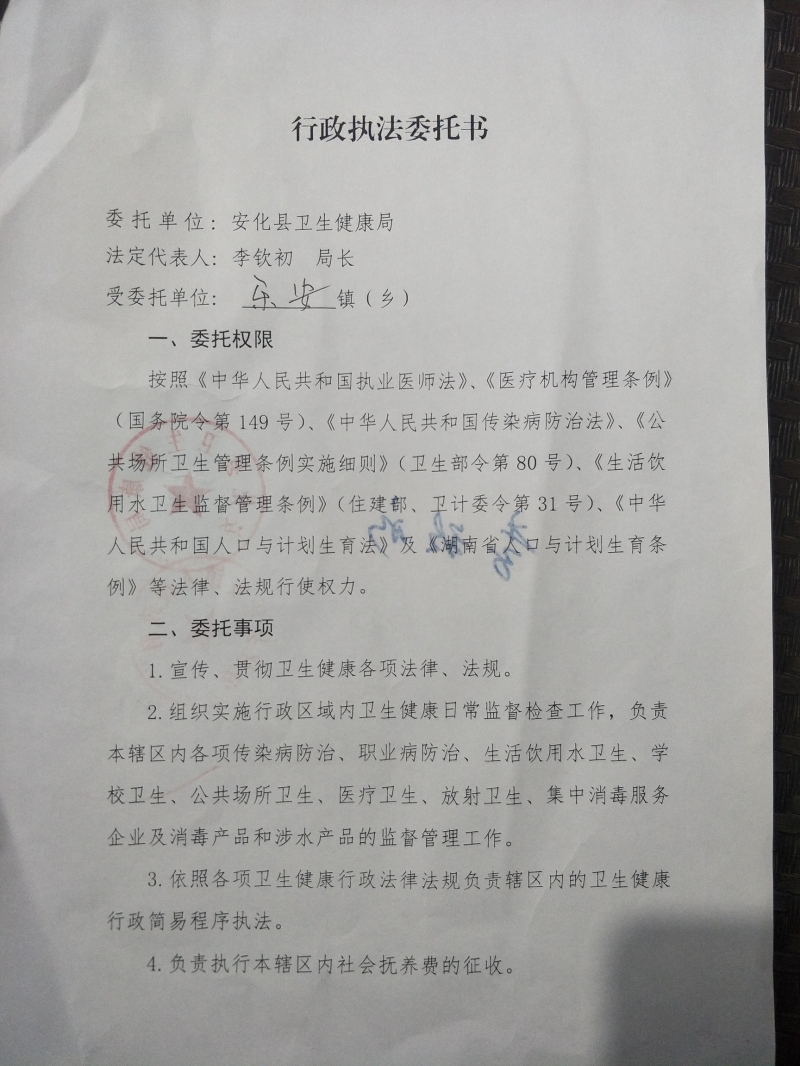 行政执法委托书
委托单位：安化县卫生健康局
法定代表人：李钦初　局长
受委托单位：乐安镇（乡）
一、委托权限
按照《中华人民共和国执业医师法》、《医疗机构管理条例》
（国务院令第 149 号）、《中华人民共和国传染病防治法》、《公
共场所卫生管理条例实施细则》（卫生部令第 80 号）、《生活饮
用水卫生监督管理条例》（住建部、卫计委令第 31 号）、《中华
人民共和国人口与计划生育法》及《湖南省人口与计划生育条
例》等法律、法规行使权力。
二、委托事项
1.宣传、贯彻卫生健康各项法律、法规。
2.组织实施行政区域内卫生健康日常监督检查工作，负责
本辖区内各项传染病防治、职业病防治、生活饮用水卫生、学
校卫生、公共场所卫生、医疗卫生、放射卫生、集中消毒服务
企业及消毒产品和涉水产品的监督管理工作。
3.依照各项卫生健康行政法律法规负责辖区内的卫生健康
行政简易程序执法。
4.负责执行本辖区内社会抚养费的征收。